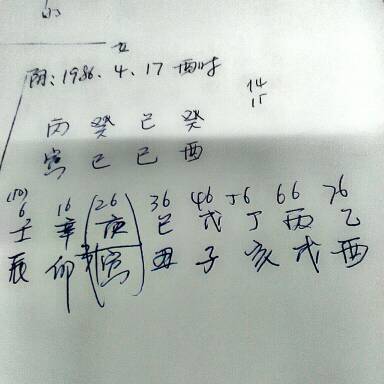 女
阴:1986、4、17 酉时
14
15
丙 癸 己 癸
寅 巳 巳 酉
(10)
6 16 26 36 46 56 66 76
壬 辛 庚 己 戊 丁 丙 乙
辰 卯 寅 丑 子 亥 戌 酉